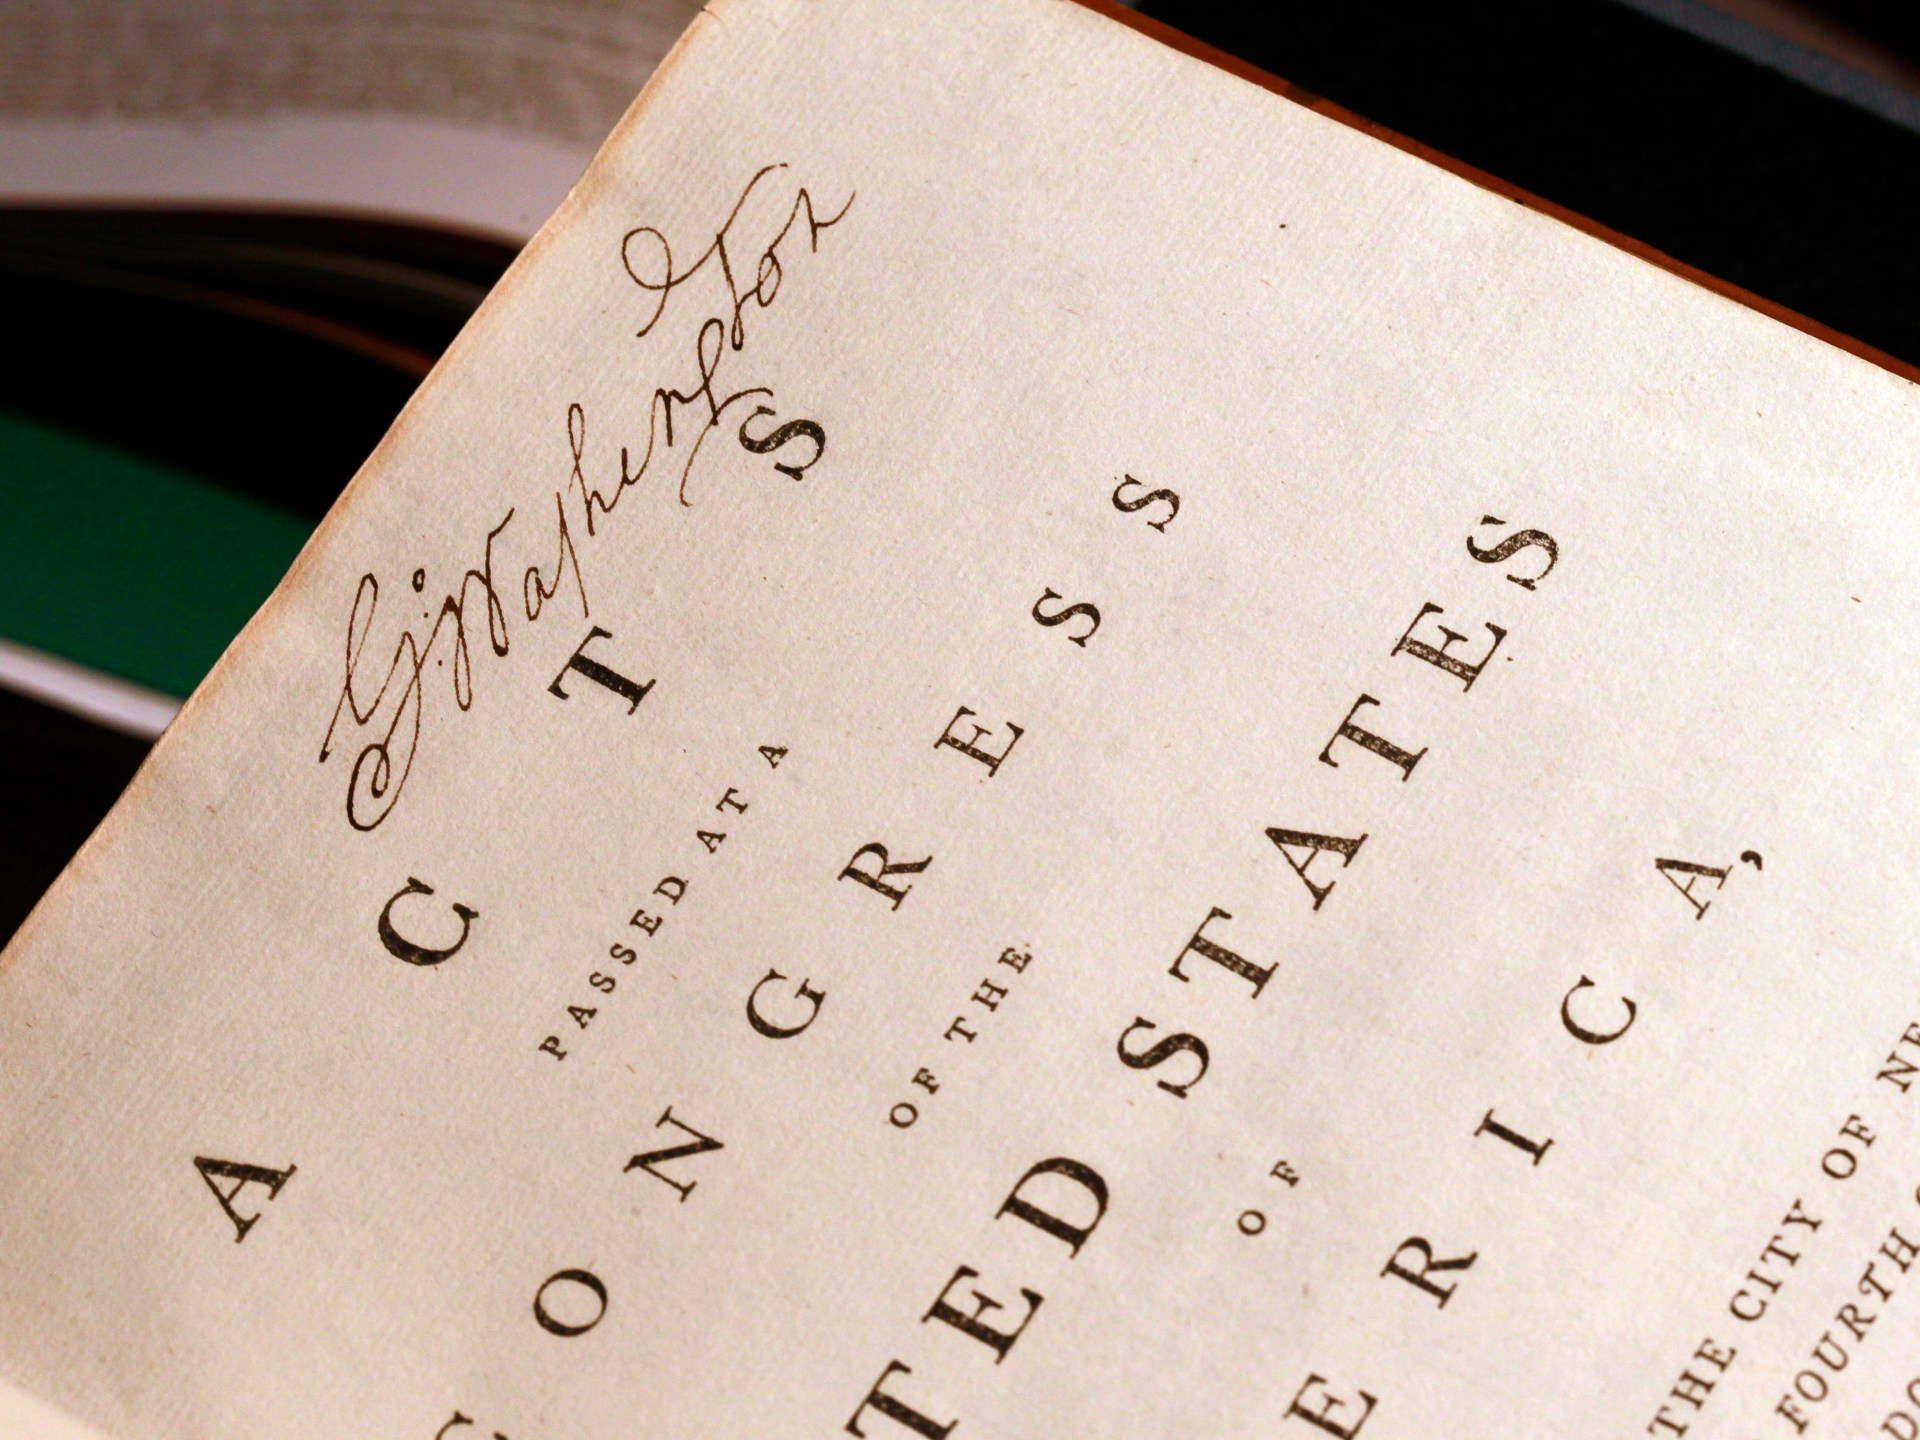 G: Waſhington
ACTS
PASSED AT A
CONGRESS
OF THE
TED STATES
OF
ERICA,
THE CITY OF NE
FOURTH